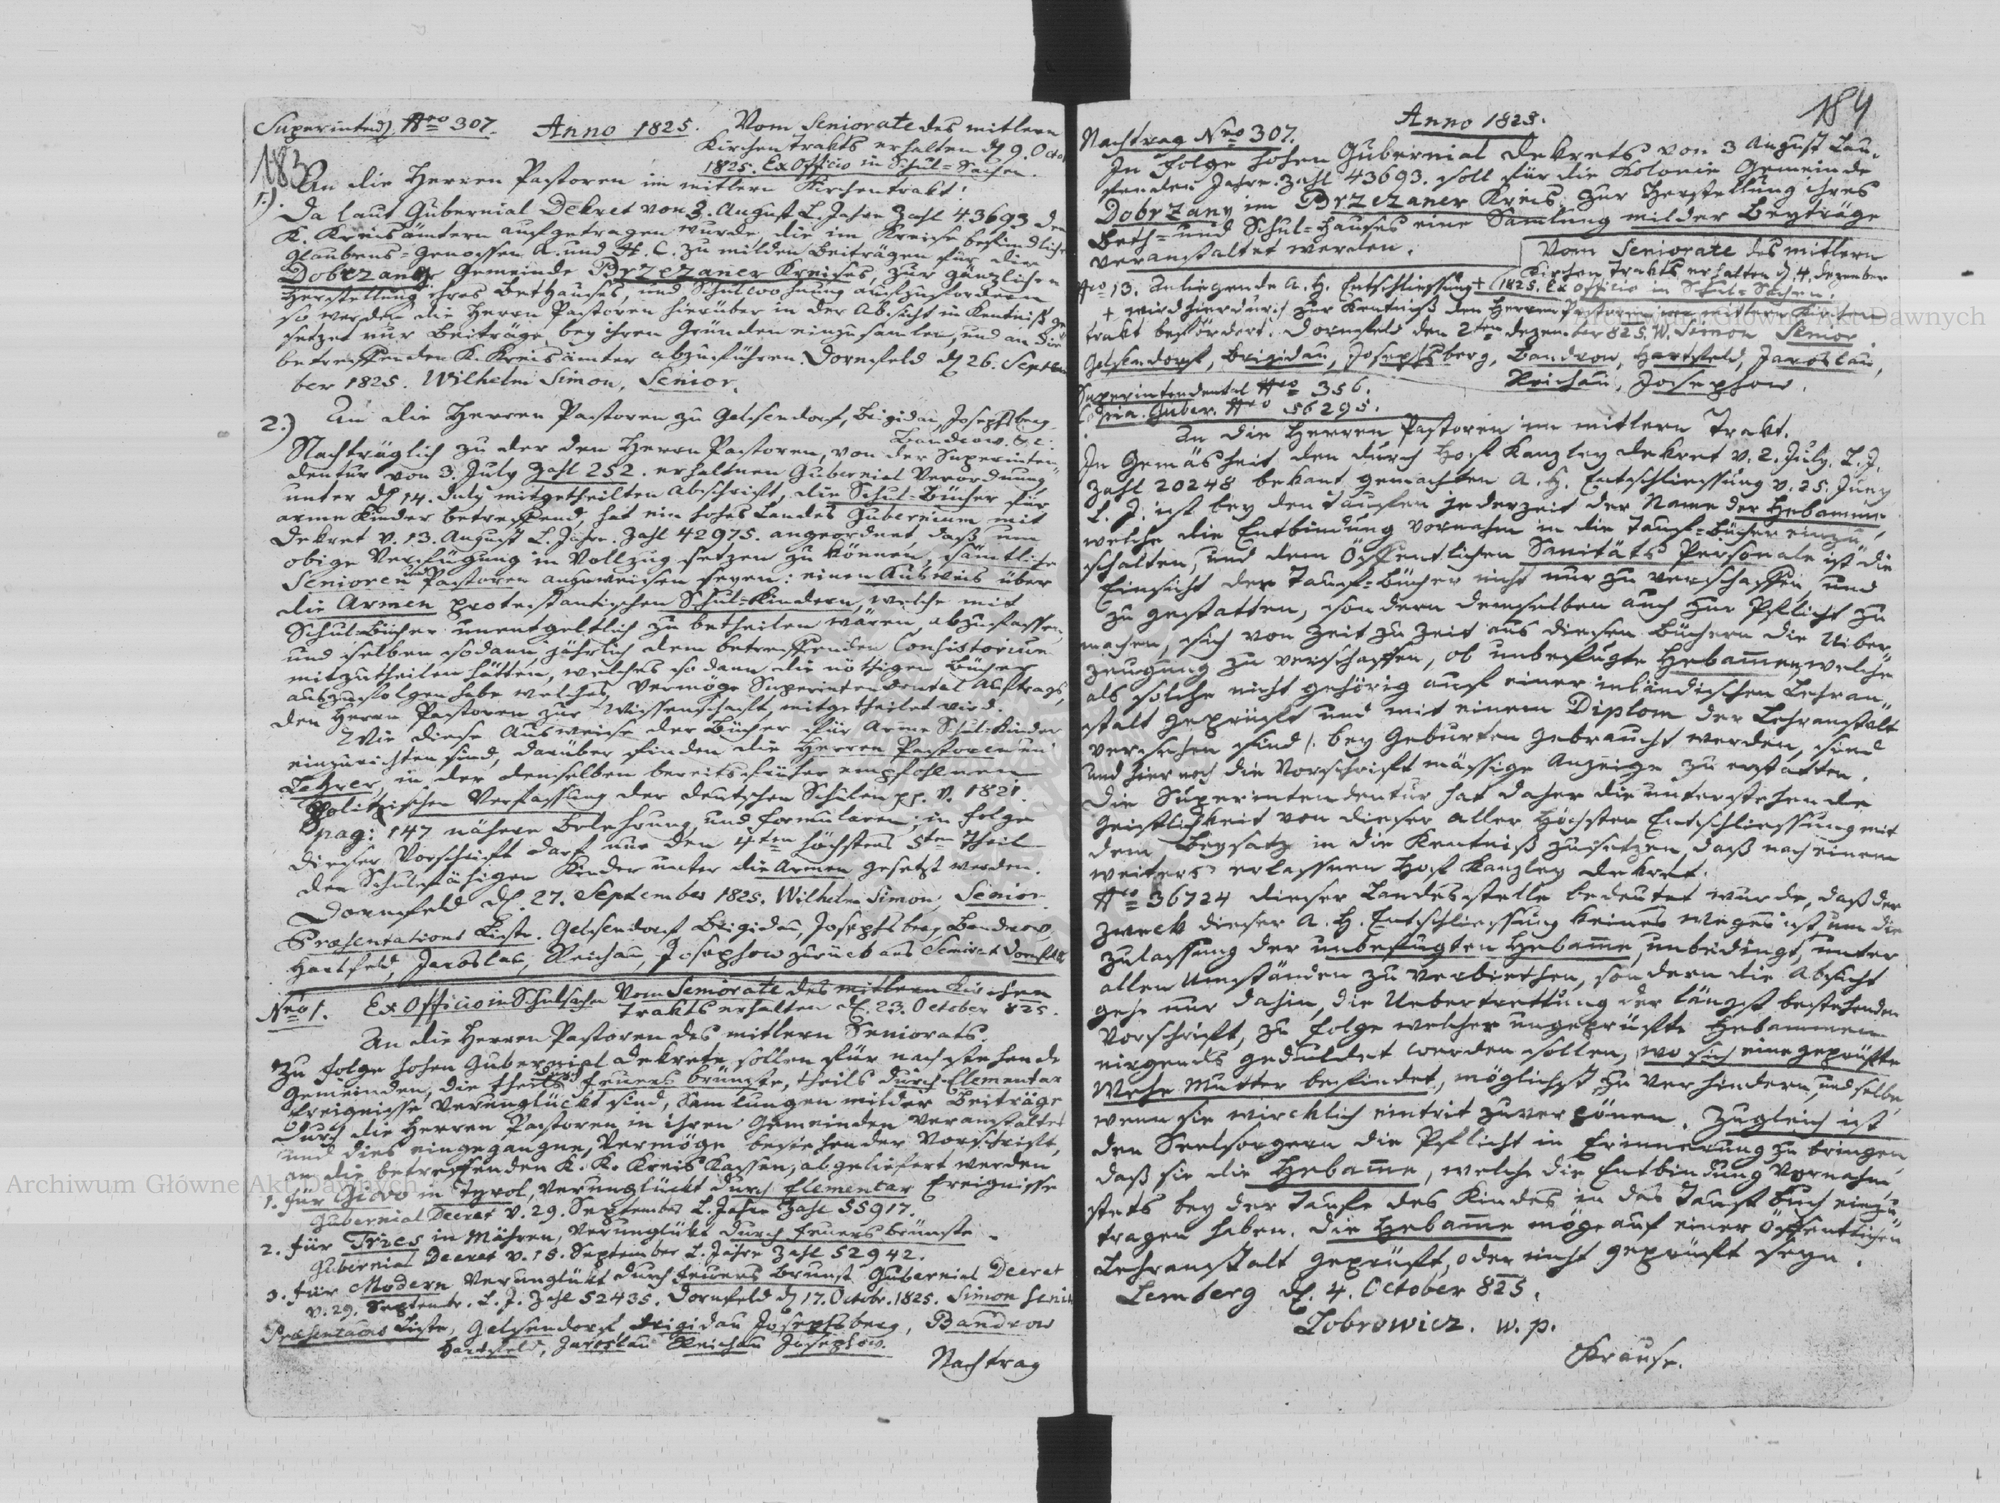 Superintend. Nro 307. Anno 1825. Vom Seniorate des mitlern
Kirchentrakts erhalten d 9. Octo
1825. Ex Officio in Schul-Sachen.
183
An die Herren Pastoren im mitlern Kirchentrakt!
1.) Da laut Gubernial Dekret von 3. August L. Jahrs Zahl 43693 den
K. Kreisämtern aufgetragen wurde, die im Kreise befindliche
Glaubens-Genossen A. und H. C. zu milden Beiträgen für die
Dobrzaner Gemeinde Brzezaner Kreises, zur gänzlichen
Herstellung ihres Bethauses, und Schulwohnung aufzufordern
so werden die Herrn Pastoren hierüber in der Absicht in Kentniß ge
setzet nur Beiträge bey ihren Gemeinden einzusamlen, und an die
betreffenden K. Kreisämter abzuführen. Dornfeld d 26. Septem
ber 1825. Wilhelm Simon, Senior.
2.) An die Herren Pastoren zu Gelsendorf, Brigidau, Josephsberg,
Bandrow. &c.
Nachträglich zu der den Herrn Pastoren, von der Superinten-
dentur von 3. July Zahl 252. erhaltnen Gubernial Verordnung
unter d 14. July mitgetheilten Abschrift, die Schul-Bücher für
arme Kinder betreffend, hat ein hohes Landes Gubernium mit
Dekret v. 13. August L. Jahrs. Zahl 42975. angeordnet daß um
obige Verfügung in Vollzug setzen zu können, sämtliche
Senioren und Pastoren anzuweisen seyen: einen Ausweis über
die Armen protestantischen Schul-Kindern, welche mit
Schul-Bücher unentgeltlich zu betheilen wären, abzufassen,
und selben sodann jährlich dem betreffenden Consistorium
mitzutheilen hätten, welches sodann die nöthigen Bücher
auszufolgen habe welches, vermöge Superintendental Auftrags,
den Herrn Pastoren zur Wissenschaft mitgetheilet wird.
Wie diese Ausweise der Bücher für Arme Schul-Kinder
einzurichten sind, darüber finden die Herren Pastoren und
Lehrer, in der denselben bereits früher empfohlenen
Politischen Verfassung der deutschen Schulen pp. v. 1821.
pag: 147 nähere Belehrung und Formularen; in Folge
dieser Vorschrift darf nur den 4ten höchstens 5ten Theil
der Schulfähigen Kinder unter die Armen gesetzt werden.
Dornfeld d. 27. September 1825. Wilhelm Simon, Senior.
Præsentations Liste. Gelsendorf Brigidau, Josephsberg Bandrow,
Hartfeld, Jaroslau, Reichau, Josephow zurück ans Seniorat Dornfeld
Nro 1. Ex Officio in Schulsachen Vom Seniorate des mitlern Kirchen
Trakts erhalten d. 23. October 825.
An die Herren Pastoren des mitlern Seniorats.
Zu Folge hohen Gubernial Dekrete sollen für nachstehende
Gemeinden, die theils durch Feuers brünste, theils durch Elementar
Ereignisse verunglückt sind, Samlungen milder Beiträge
durch die Herren Pastoren in ihren Gemeinden veranstaltet
und dies eingegangne, vermöge bestehender Vorschrift,
an die betreffenden K. K. Kreis Kassen, abgeliefert werden
1. Für Giovo in Tyrol, verunglückt durch Elementar Ereignisse
Gubernial Decret v. 29. September L. Jahrs Zahl 55917.
2. Für Tries in Mähren, verunglükt durch Feuers brünste.
Gubernial Decret v. 15. September L. Jahrs Zahl 52942.
3. Für Modern verunglükt durch Feuers Brunst Gubernial Decret
v. 29. Septembr. L. J. Zahl 52435. Dornfeld d 17. Octobr. 1825. Simon Senior
Præsentations Liste, Gelsendorf Brigidau Josephsberg, Bandrow
Hartfeld, Jaroslau Reichau Josephow.
Nachtrag
184
Anno 1825.
Nachtrag Nro 307.
In Folge hohen Gubernial Dekrets von 3 August Lau-
fenden Jahrs. Zahl 43693. soll für die Kolonie Gemeinde
Dobrzany im Brzezaner Kreis, zur Herstellung ihres
Beth- und Schul-Hauses eine Samlung milder Beyträge
veranstaltet werden.
Vom Seniorate des mitlern
Kirchen Trakts erhalten d. 4. Dezember
1825. Ex Officio in Schul-Sachen.
Nro 13. Anliegende A. H. Entschliessung +
+ wird hierdurch zur Kentniß den Herren Pastoren im mitlern Kirchen
trakt befördert. Dornfeld den 2ten Dezember 825. W. Simon Senior
Gelsendorf, Brigidau, Josephsberg, Bandrow, Hartfeld, Jaroslau,
Reichau, Josephow.
Superintendental Nro 356.
Guber. Nro 56295.
An die Herren Pastoren im mitlern Trakt.
In Gemäsheit den durch Hof Kanzley Dekret v. 2. July. L. J.
Zahl 20248 bekant gemachten A. H. Entschliessung v. 25. Juny
L. J. ist bey den Taufen jederzeit der Name der Hebamme
welche die Entbindung vornahm in die Tauf-Bücher einzu-
schalten, und dem Öffentlichen Sanitäts Personale ist die
Einsicht der Tauf-Bücher nicht nur zu verschaffen, und
zu gestatten, sondern demselben auch zur Pflicht zu
machen, sich von Zeit zu Zeit aus diesen Büchern die Uiber-
zeugung zu verschaffen, ob unbefugte Hebammen, welche
als solche nicht gehörig auf einer inländischen Lehran-
stalt geprüft und mit einem Diplom der Lehranstalt
versehen sind /. bey Geburten gebraucht werden, sind
und hiernach die Vorschrift mässige Anzeige zu erstatten.
Die Superintendentur hat daher die unterstehende
Geistlichkeit von dieser aller Höchsten Entschliessung mit
dem Beysatz in die Kentniß zu setzen, daß nach einem
weiters erlassenen Hof Kanzley Dekret.
Nro 36724 dieser Landesstelle bedeutet wurde, daß der
Zweck dieser A. H. Entschliessung keines weges ist, um die
Zulassung der unbefugten Hebamme, unbedingt, unter
allen Umständen zu verbiethen, sondern die Absicht
gehe nur dahin, die Uebertrettung der längst bestehenden
Vorschrift, zu Folge welcher ungeprüfte Hebammen
nirgends geduldet werden sollen, wo sich eine geprüfte
Wehe Mutter befindet, möglichst zu verhindern, und selbe
wenn sie wircklich eintrit zu verpönen. Zugleich ist
den Seelsorgern die Pflicht in Erinnerung zu bringen,
daß sie die Hebamme, welche die Entbindung vornahm
stets bey der Taufe des Kindes in das Tauf Buch einzu-
tragen haben. die Hebamme möge auf einer Öffentlichen
Lehranstalt geprüft, oder nicht geprüft seyn.
Lemberg d. 4. October 825.
Lobrowicz. w. p.
Krause.
Archiwum Główne Akt Dawnych
Archiwum Główne Akt Dawnych